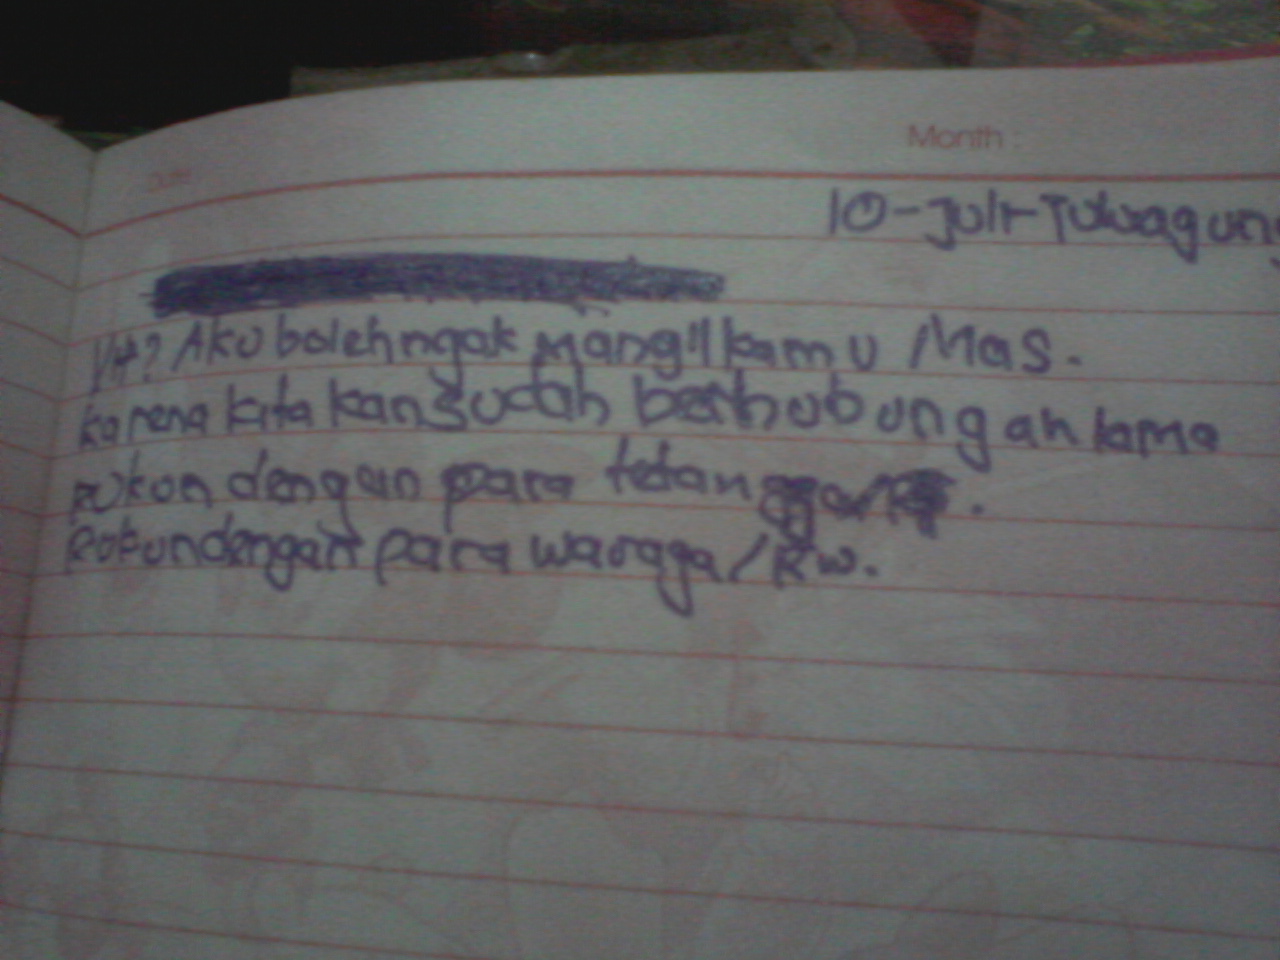 Month :
Date
10-Juli-Tuluagung
Aku boleh ngak mangil kamu Mas.
karena kita kan sudah berhubungan lama
rukon dengan para
Rokun dengan para waraga/Rw.